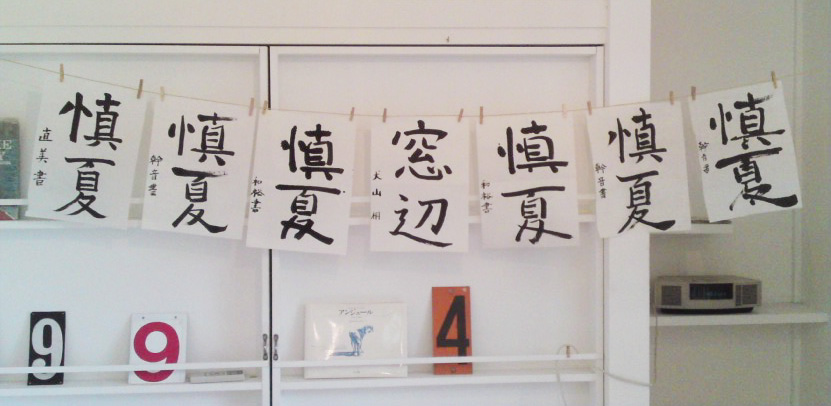 慎夏
直美書
慎夏
幹音書
慎夏
和裕書
窓辺
慎夏
和裕書
慎夏
幹音書
慎夏
幹音書
9
9
アンジュール
4